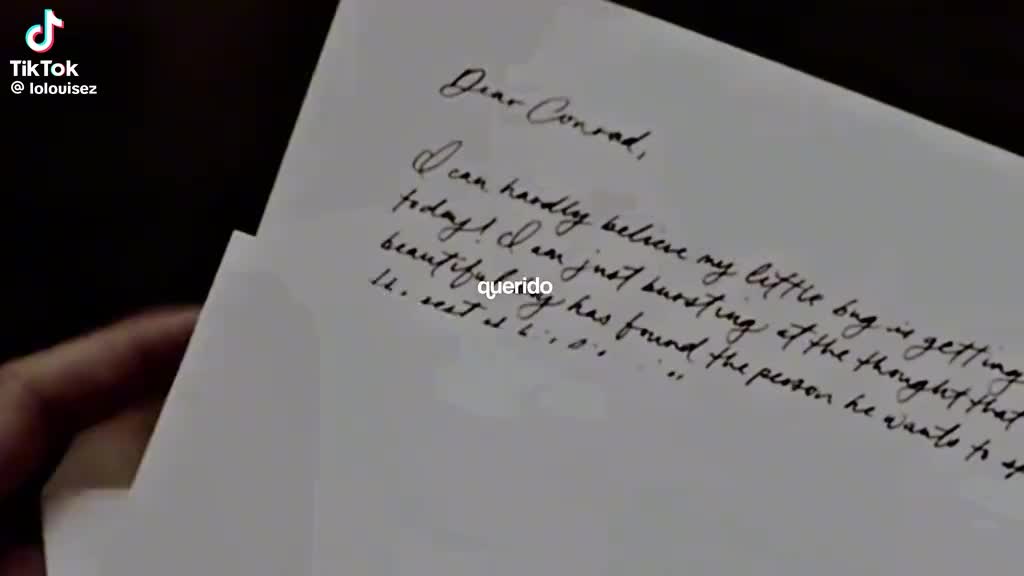 TikTok
@ lolouisez
Dear Conrad,
I can hardly believe my little bug is getting
today! I am just bursting at the thought that
querido
beautiful has found the person he wants to
rest